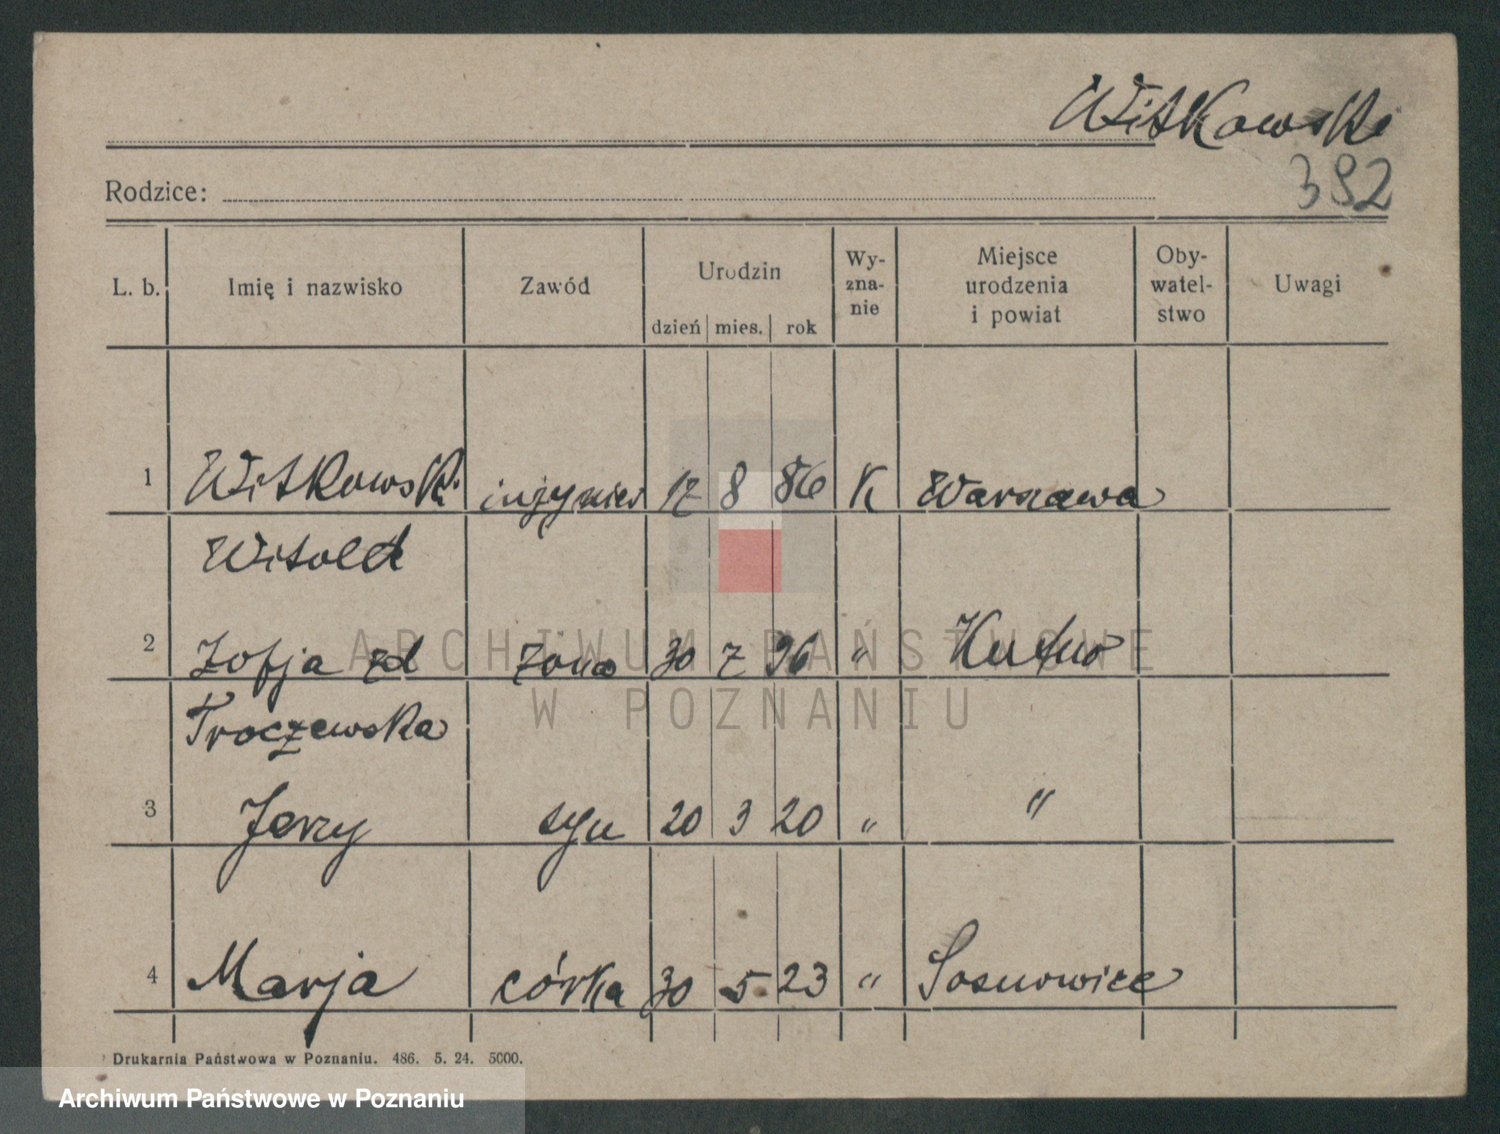 Witkowski
Rodzice:
392
L. b. Imię i nazwisko Zawód Urodzin dzień mies. rok Wy-zna-nie Miejsce urodzenia i powiat Oby-watel-stwo Uwagi
1 Witkowski inżynier 17 8 86 K Warszawa
Witold
2 Zofja zd żona 30 7 96 " Kutno
Troczewska
3 Jerzy syn 20 3 20 " "
4 Marja córka 30 5 23 " Sosnowice
ARCHIWUM PAŃSTWOWE
W POZNANIU
Drukarnia Państwowa w Poznaniu. 486. 5. 24. 5000.
Archiwum Państwowe w Poznaniu